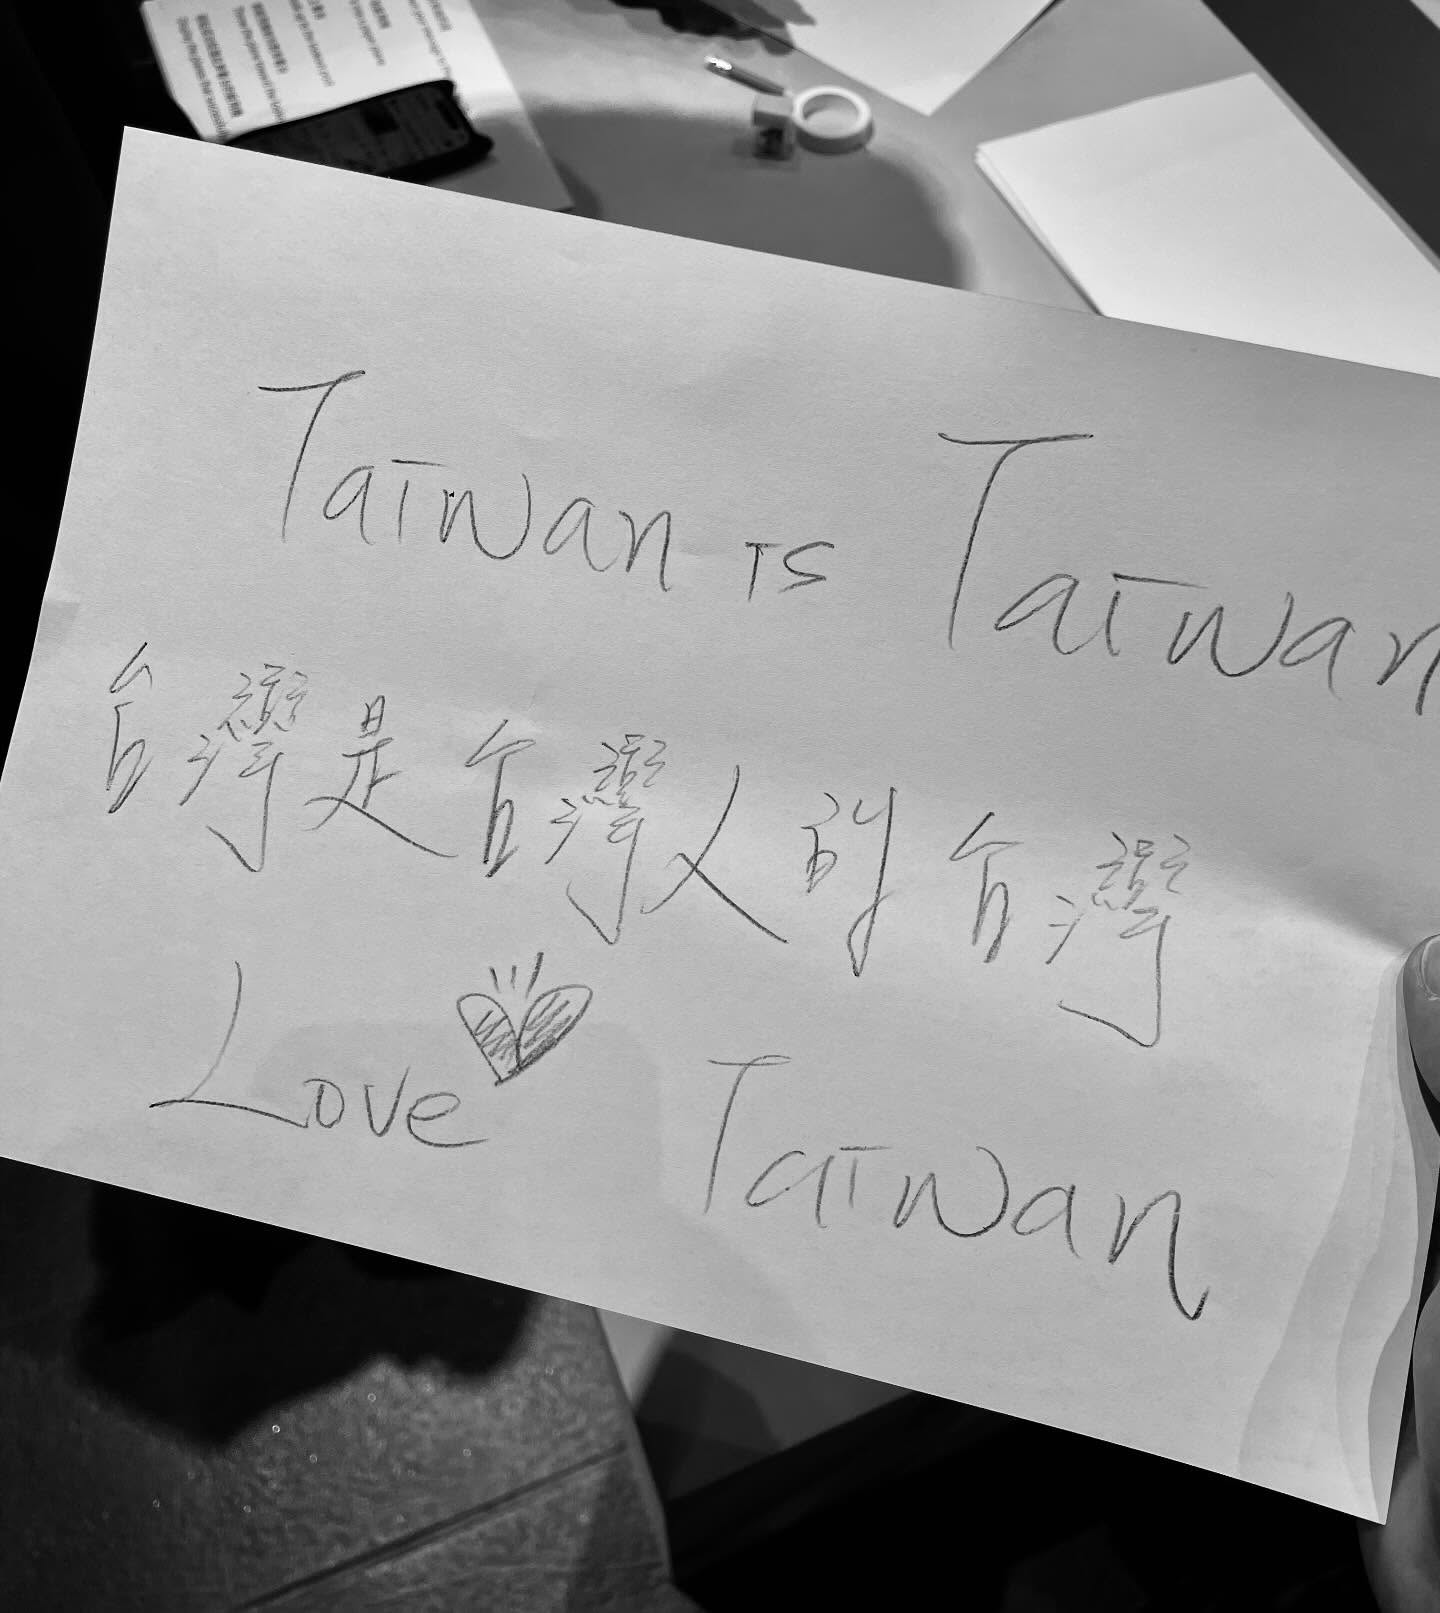 Taiwan is Taiwan
台灣是台灣人的台灣
Love Taiwan